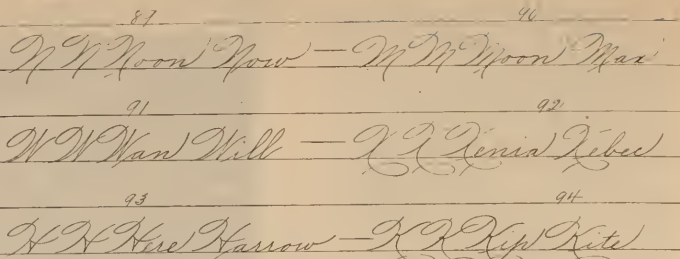 89 90
N N Noon Now — M M Moon Max
91 92
W W Wan Will — X X Xenia Xebec
93 94
H H Here Harrow — K K Kip Kite